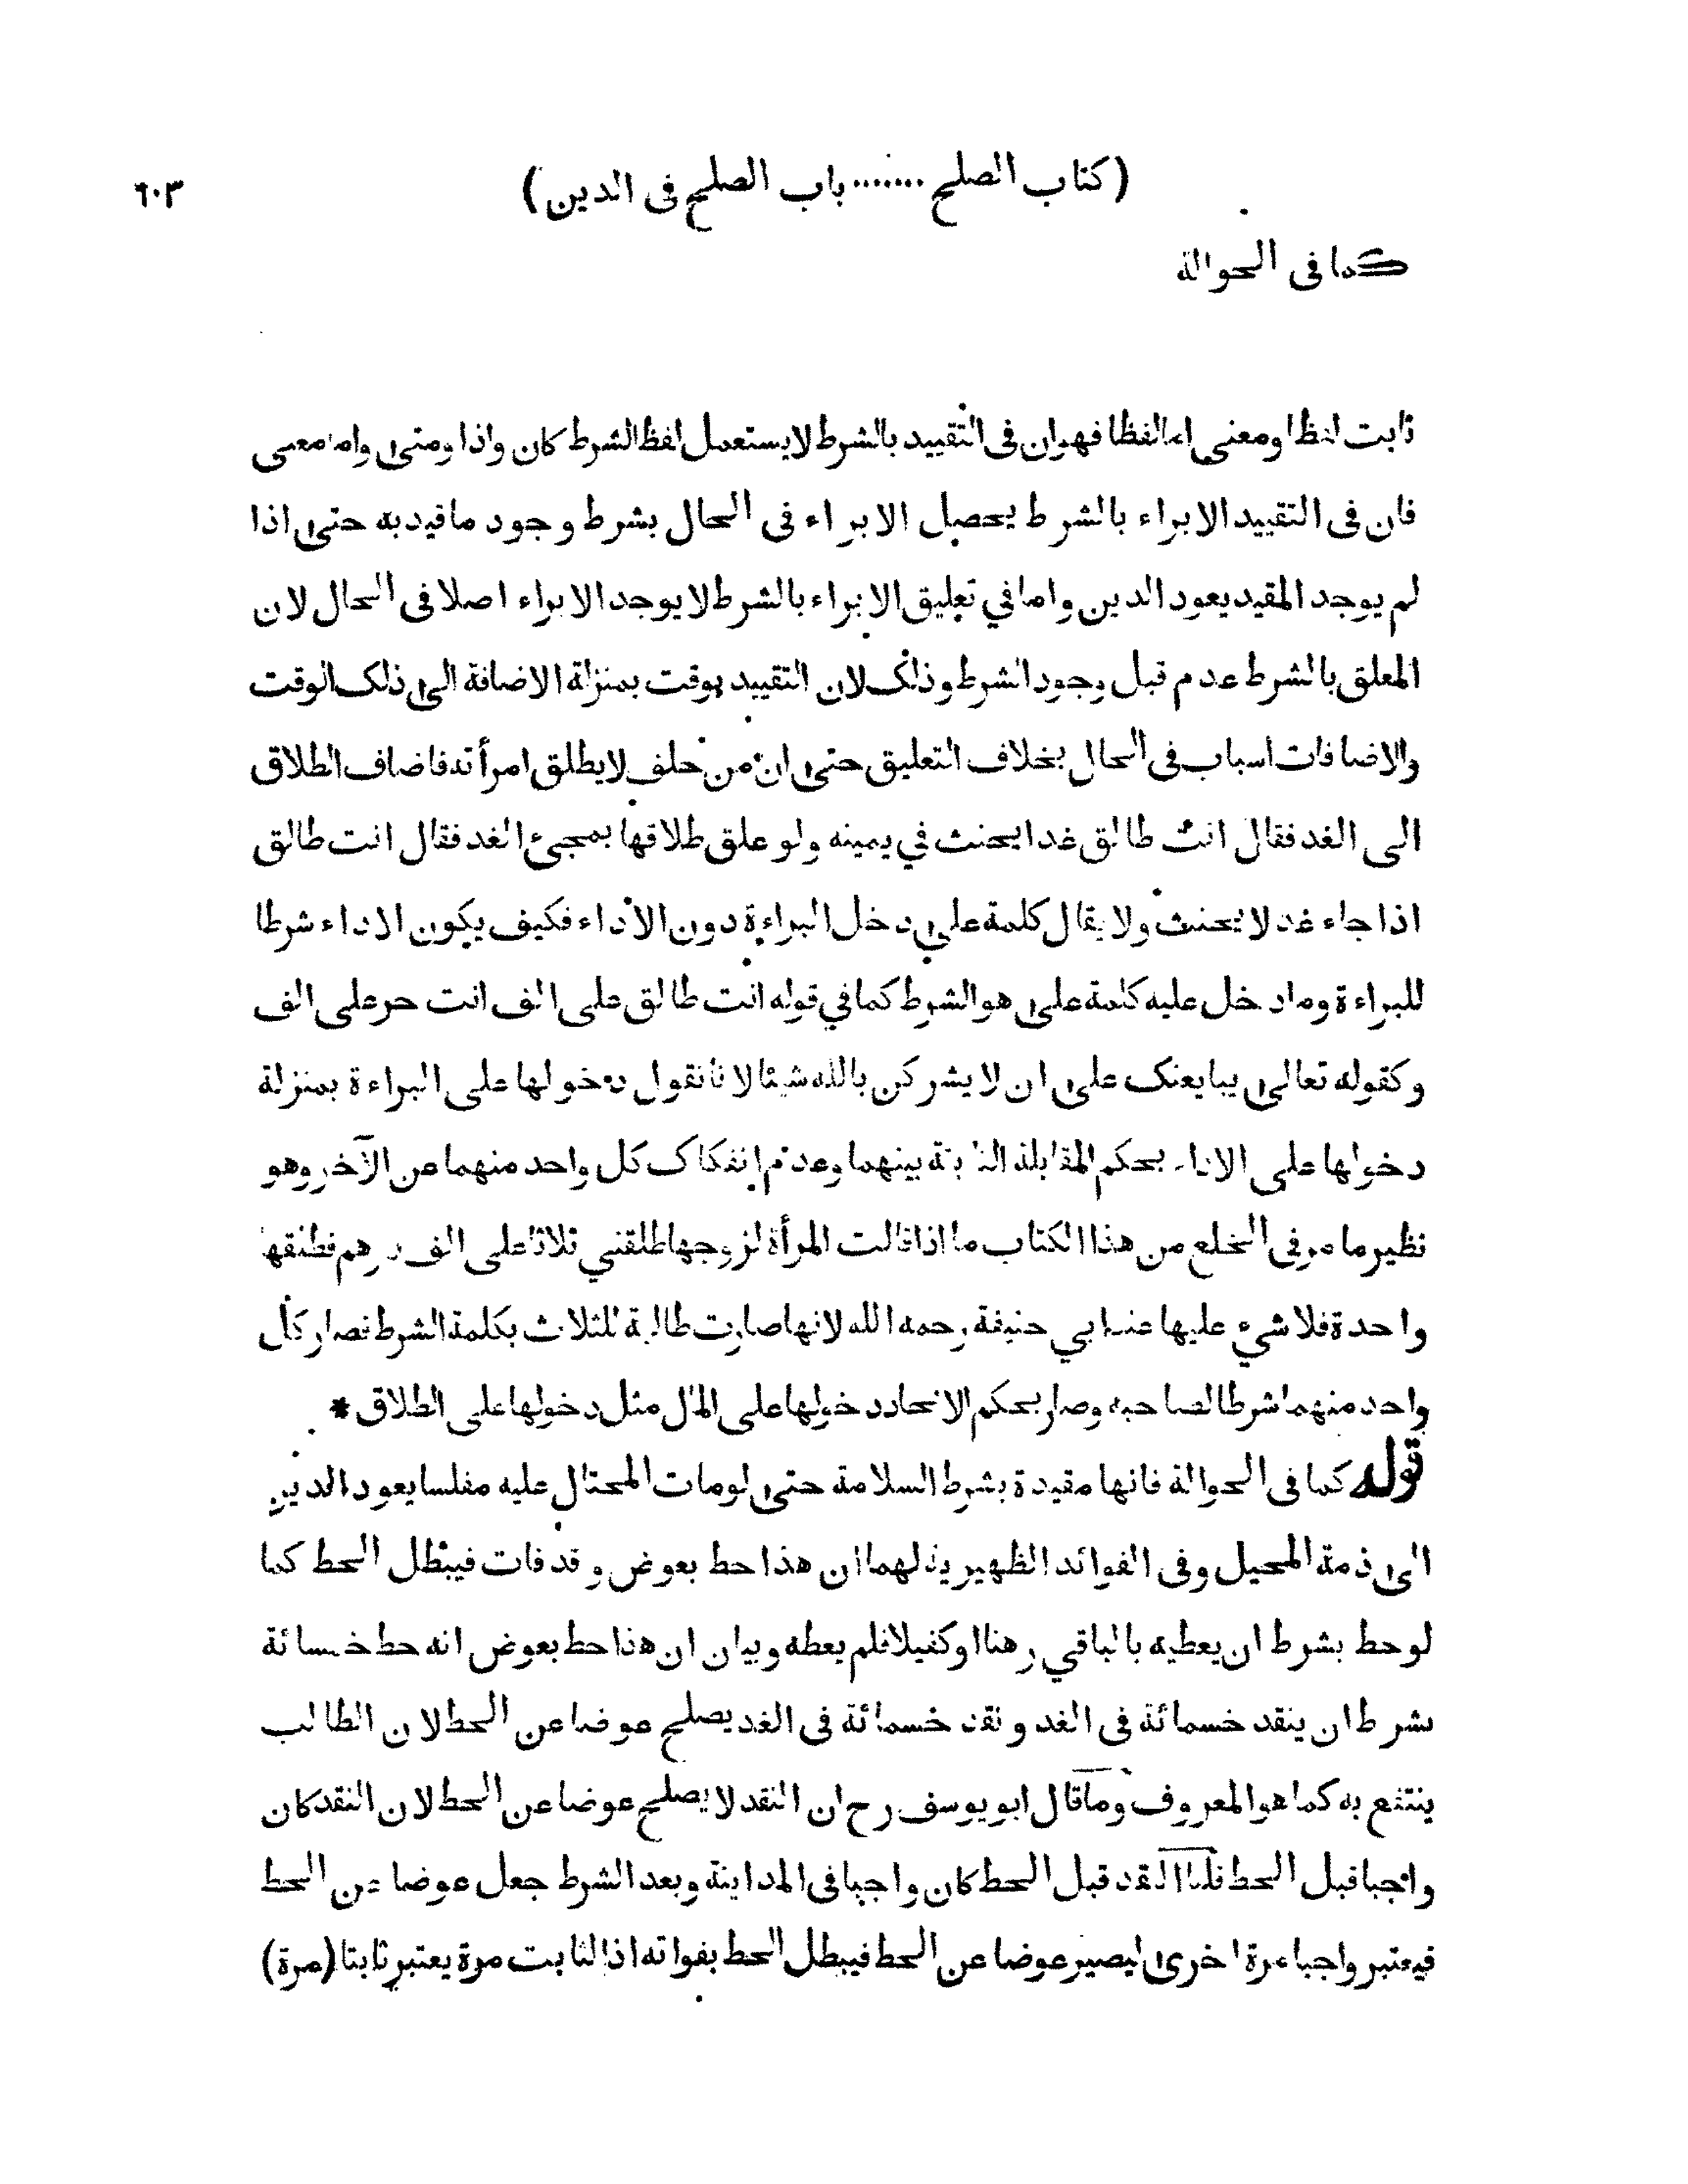 (كتاب الصلح ....... باب الصلح فى الدين)
٦٠٣
كما فى الحوالة
ثابت لفظا ومعنى اما لفظا فهوان فى التقييد بالشرط لا يستعمل لفظ الشرط كان واذا ومتى واما معنى
فان فى التقييد الابراء بالشرط يحصل الابراء فى الحال بشرط وجود ما قيد به حتى اذا
لم يوجد المقيد يعود الدين واما في تعليق الابراء بالشرط لا يوجد الابراء اصلا فى الحال لان
المعلق بالشرط عدم قبل وجود الشرط وذلك لان التقييد بوقت بمنزلة الاضافة الى ذلك الوقت
والاضافات اسباب فى الحال بخلاف التعليق حتى ان من حلف لا يطلق امرأته فاضاف الطلاق
الى الغد فقال انت طالق غدا يحنث في يمينه ولو علق طلاقها بمجئ الغد فقال انت طالق
اذا جاء غد لا يحنث ولا يقال كلمة على دخل البراءة دون الاداء فكيف يكون الاداء شرطا
للبراءة وما دخل عليه كلمة على هو الشرط كما في قوله انت طالق على الف انت حر على الف
وكقوله تعالى يبايعنك على ان لا يشركن بالله شيئا لانا نقول دخولها على البراءة بمنزلة
دخولها على الاداء بحكم المقابلة الثابتة بينهما وعدم انفكاك كل واحد منهما عن الآخر وهو
نظير ما مر فى الخلع من هذا الكتاب ما اذا قالت المرأة لزوجها طلقني ثلاثا على الف درهم فطلقها
واحدة فلا شيء عليها عند ابي حنيفة رحمه الله لانها صارت طالبة للثلاث بكلمة الشرط فصار كل
واحد منهما شرطا لصاحبه وصار بحكم الاتحاد دخولها على المال مثل دخولها على الطلاق *
قوله كما فى الحوالة فانها مقيدة بشرط السلامة حتى لومات المحتال عليه مفلسا يعود الدين
الى ذمة المحيل وفى الفوائد الظهيرية لهما ان هذا حط بعوض وقد فات فيبطل الحط كما
لوحط بشرط ان يعطيه بالباقي رهنا او كفيلا فلم يعطه وبيان ان هذا حط بعوض انه حط خمسائة
بشرط ان ينقد خسمائة فى الغد ونقد خسمائة فى الغد يصلح عوضا عن الحط لان الطالب
ينتفع به كما هو المعروف وما قال ابو يوسف رح ان النقد لا يصلح عوضا عن الحط لان النقد كان
واجبا قبل الحط قلنا النقد قبل الحط كان واجبا فى المداينة وبعد الشرط جعل عوضا عن الحط
فيعتبر واجبا مرة اخرى ليصير عوضا عن الحط فيبطل الحط بفواته اذ الثابت مرة يعتبر ثابتا (مرة)